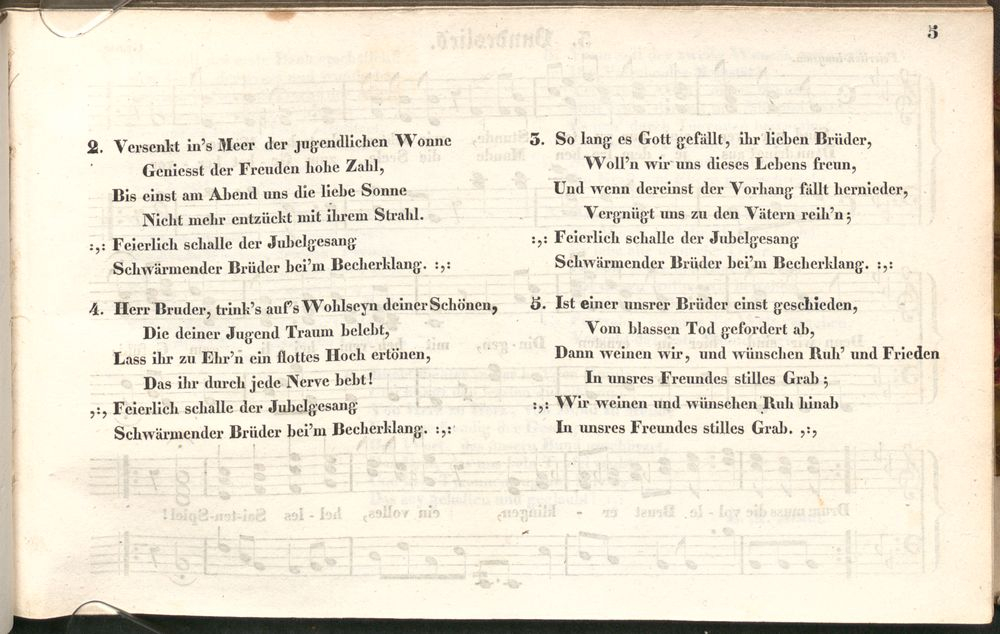 5
2. Versenkt in's Meer der jugendlichen Wonne
Geniesst der Freuden hohe Zahl,
Bis einst am Abend uns die liebe Sonne
Nicht mehr entzückt mit ihrem Strahl.
:,: Feierlich schalle der Jubelgesang
Schwärmender Brüder bei'm Becherklang. :,:
3. So lang es Gott gefällt, ihr lieben Brüder,
Woll'n wir uns dieses Lebens freun,
Und wenn dereinst der Vorhang fällt hernieder,
Vergnügt uns zu den Vätern reih'n;
:,: Feierlich schalle der Jubelgesang
Schwärmender Brüder bei'm Becherklang. :,:
4. Herr Bruder, trink's auf's Wohlseyn deiner Schönen,
Die deiner Jugend Traum belebt,
Lass ihr zu Ehr'n ein flottes Hoch ertönen,
Das ihr durch jede Nerve bebt!
,:, Feierlich schalle der Jubelgesang
Schwärmender Brüder bei'm Becherklang. :,:
5. Ist einer unsrer Brüder einst geschieden,
Vom blassen Tod gefordert ab,
Dann weinen wir, und wünschen Ruh' und Frieden
In unsres Freundes stilles Grab;
:,: Wir weinen und wünschen Ruh hinab
In unsres Freundes stilles Grab. ,:,